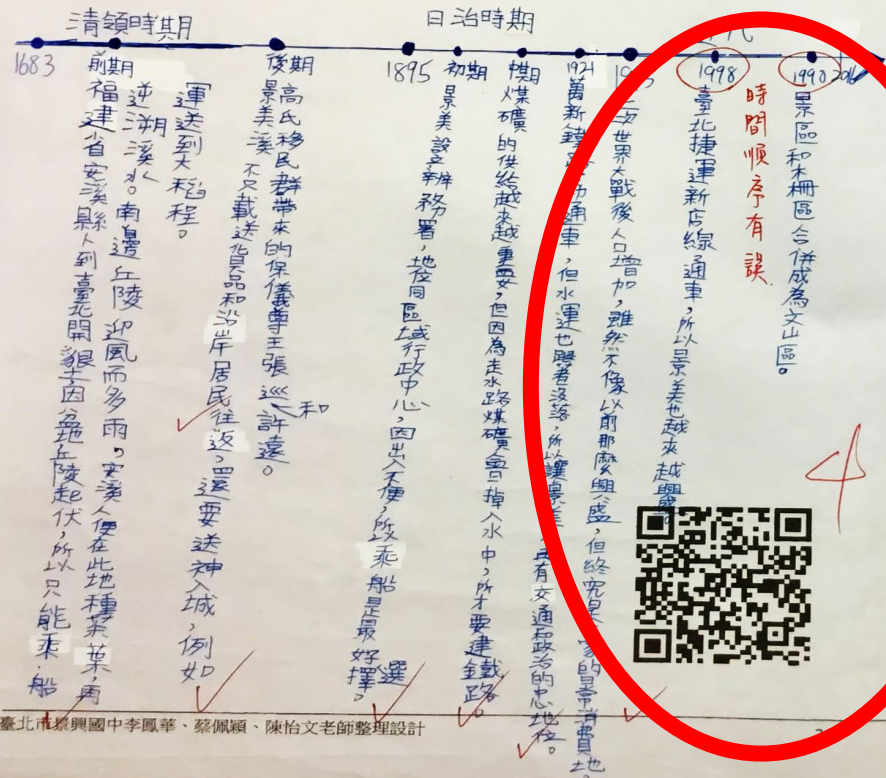 清領時期
日治時期
代
1683
前期
後期
1895
初期
中期
1921
1998
1990
2016
福建省安溪縣人到臺北開墾,因盆地丘陵起伏,所以只能乘船
逆溯溪水。南邊丘陵迎風而多雨。安溪人便在此地種茶葉,再
運送到大稻程。
高氏移民群帶來的保儀尊王張巡和許遠。
景美溪不只載送貨品和沿岸居民往返,還要送神入城,例如
景美設辦務署,地位同區域行政中心,因出入不便,所以乘船是最好選擇。
煤礦的供給越來越重要,但因為走水路煤礦會掉入水中,所才要建鐵路。
萬新鐵路通車,但水運也跟著沒落,所以讓景美
有交通和政治的忠地位。
二次世界大戰後人口增加,雖然不像以前那麼興盛,但終究是
的日常消費地。
臺北捷運新店線通車,所以景美也越來越興盛。
時間順序有誤
景區和木柵區合併成為文山區。
4
臺北市景興國中李鳳華、蔡佩穎、陳怡文老師整理設計